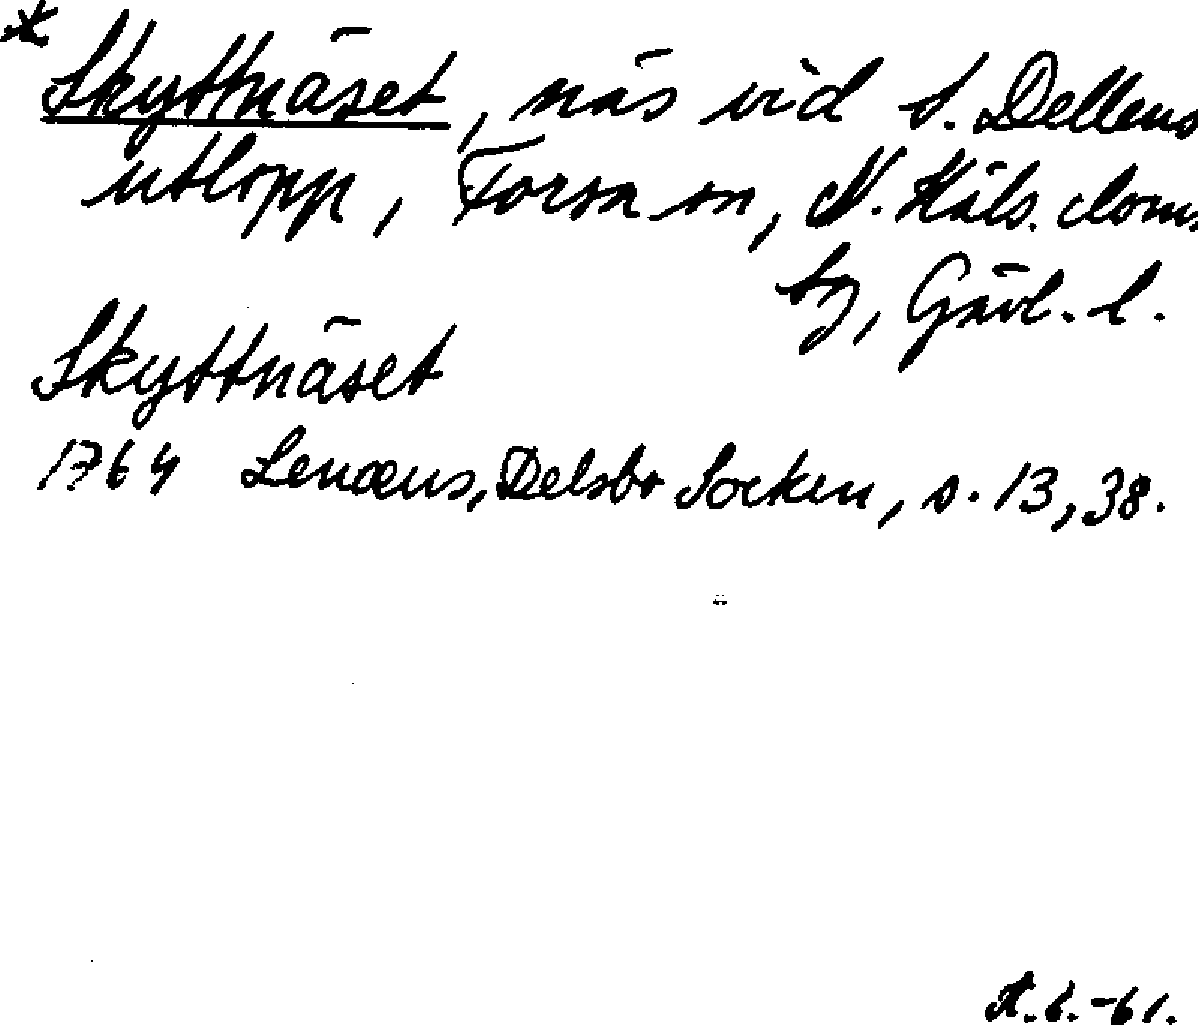 * Skyttnäset, näs vid S. Dellens
utlopp, Forsa sn, N. Häls. doms.
by, Gävl. l.
Skyttnäset
1764 Lenæus, Delsbo Socken, s. 13, 38.
-61.